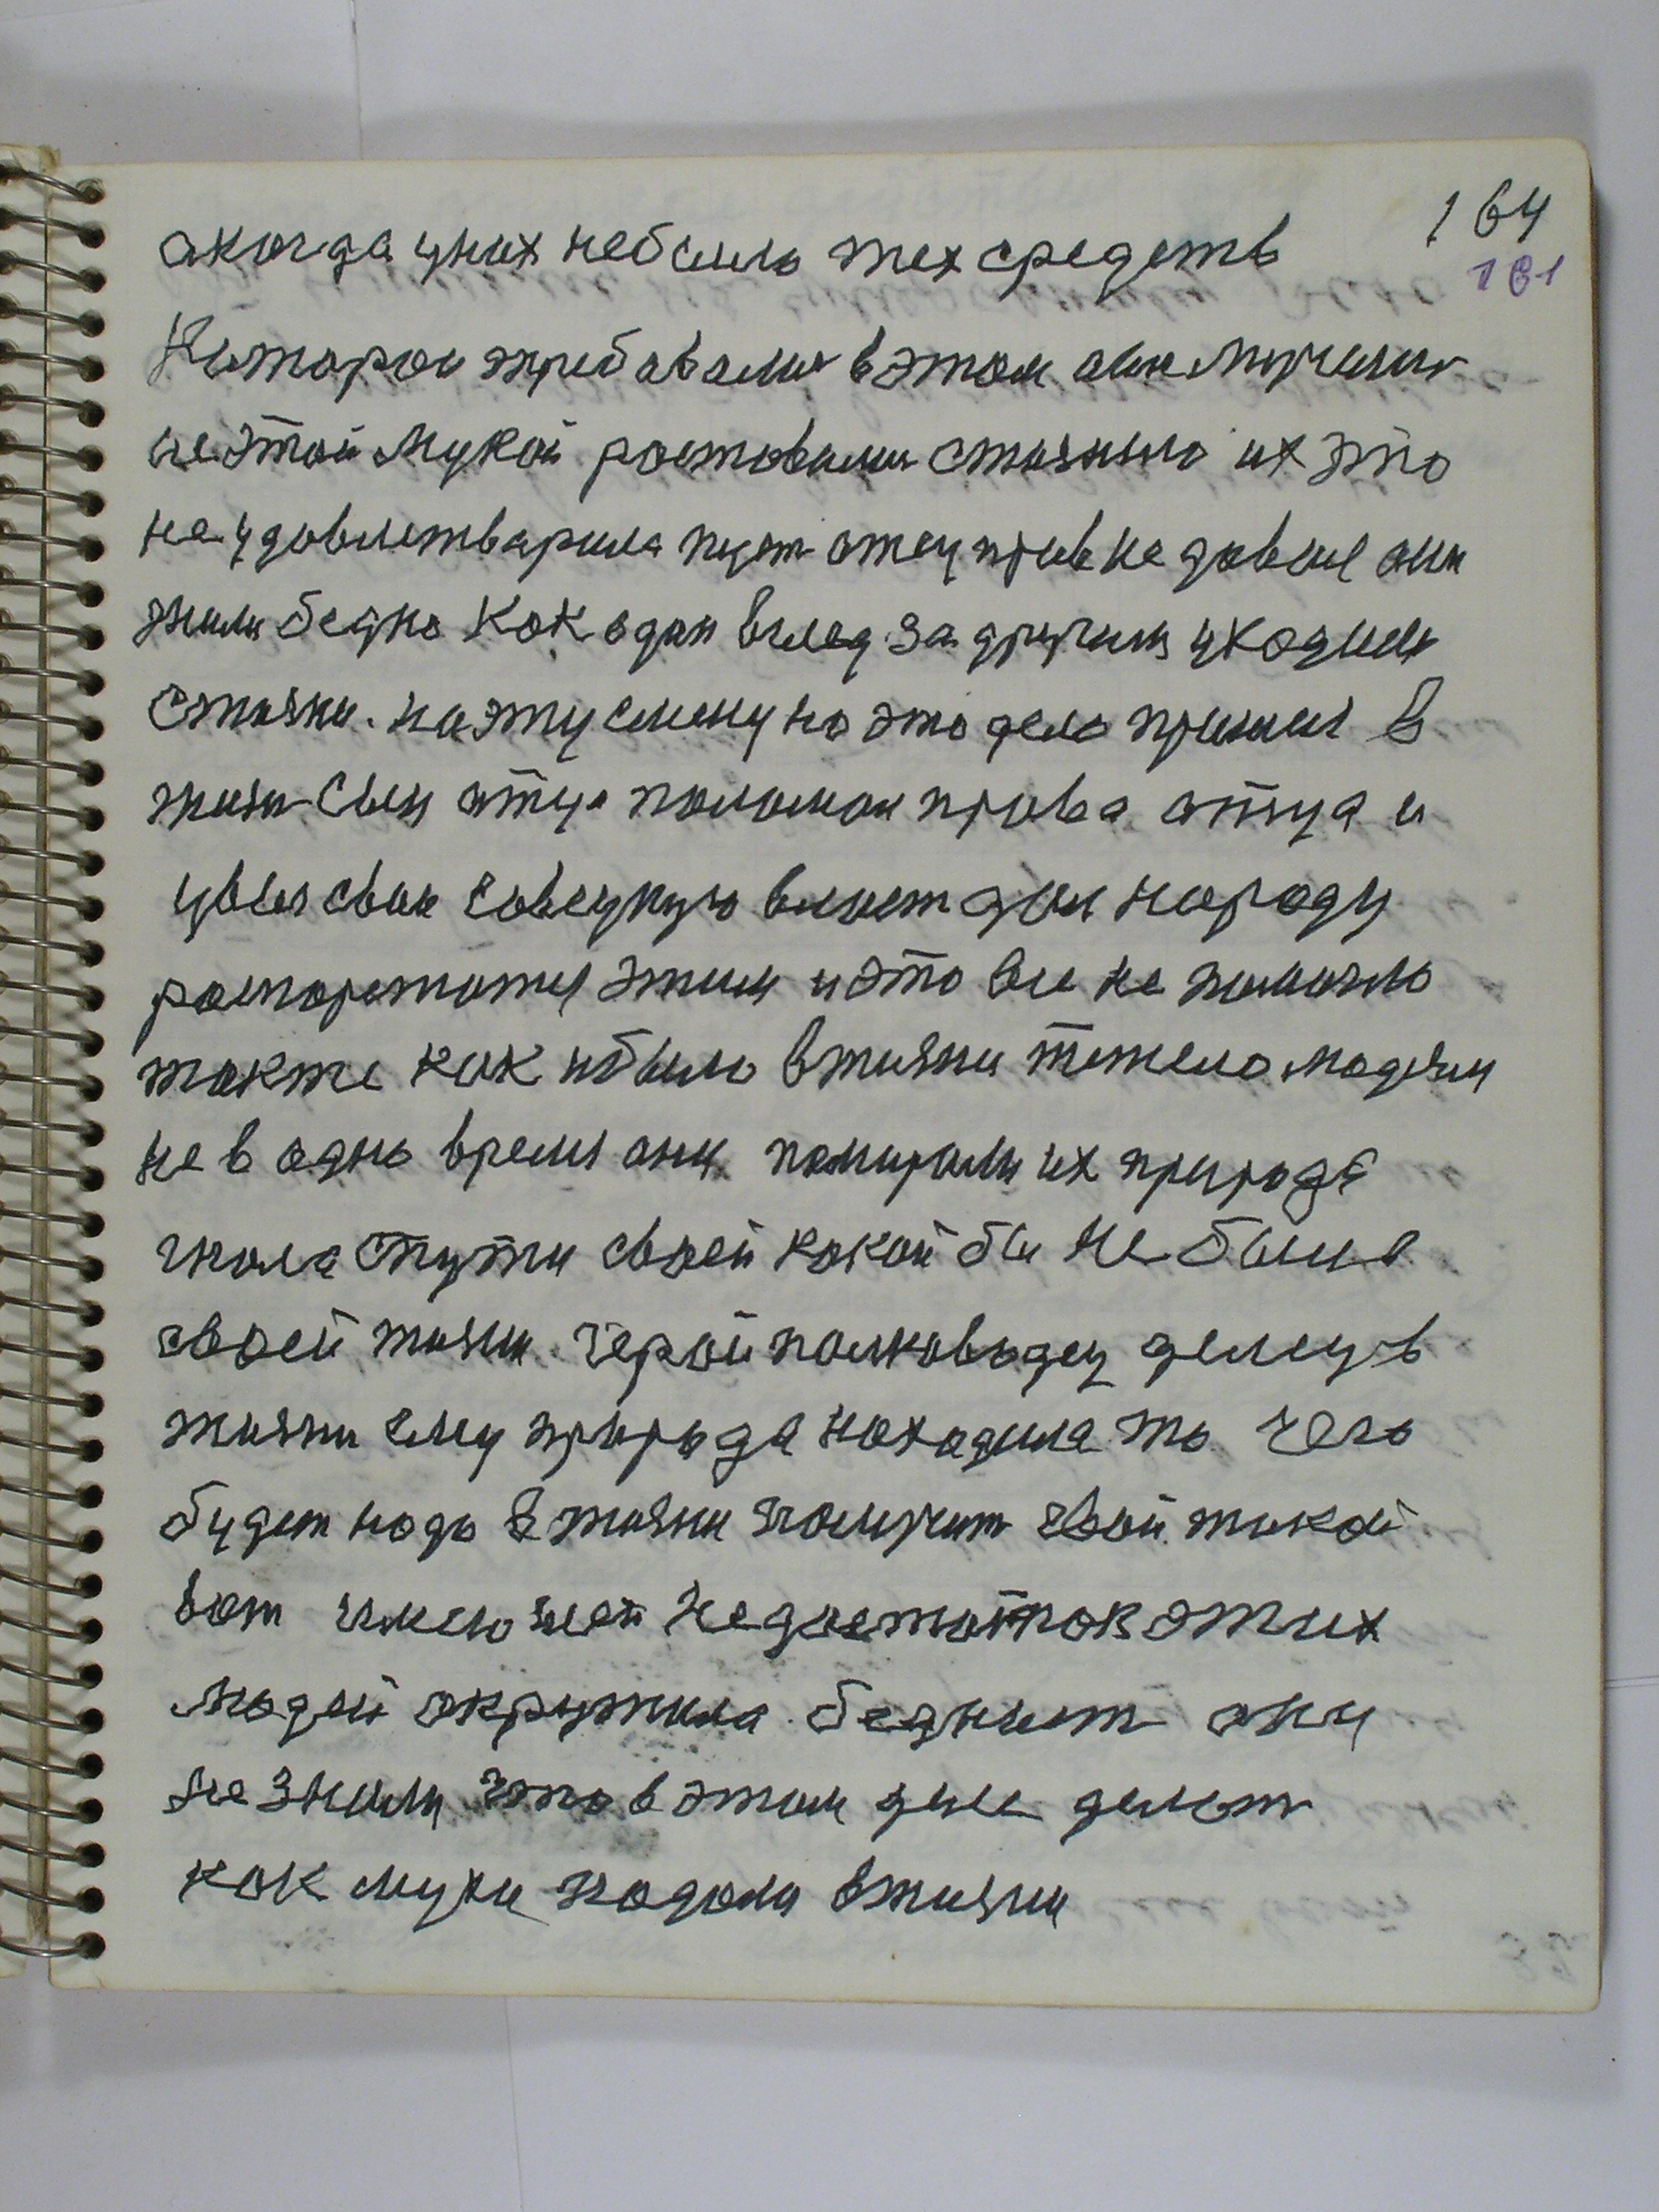 164
161
а когда у них небыло тех средств
Которои требавались в этом они мучились
не этой мукой ростовались стихиило их это
не удовлетварила пут отец прав не давал они
жили бедно Как один вслед за другим уходили
с жизни. на эту смену на это дело пришел в
жизнь сын отца поломал права отца и
ввел свою советцкую власт дал народу
роспорежатся этим и это все не помогло
также как и было в жизни тежело людям
не в одно время они помирали их природа
гнала с пути своей какой бы не был в
своей жизни. герой полководец делец в
жизни ему природа находила то чего
будет надо в жизни получит свой такой
вот имеющей недостатков этих
людей окружила беднист они
не знали что в этом деле делат
как мухи подали в жизни